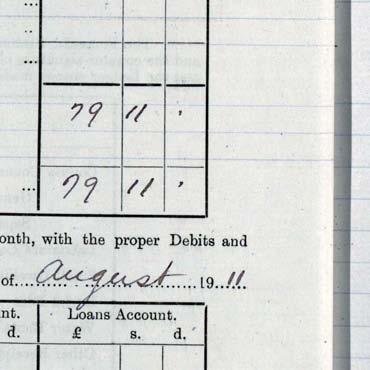 79 11 '
... 79 11 '
onth, with the proper Debits and
of....August....1911
nt. Loans Account.
d. £ s. d.